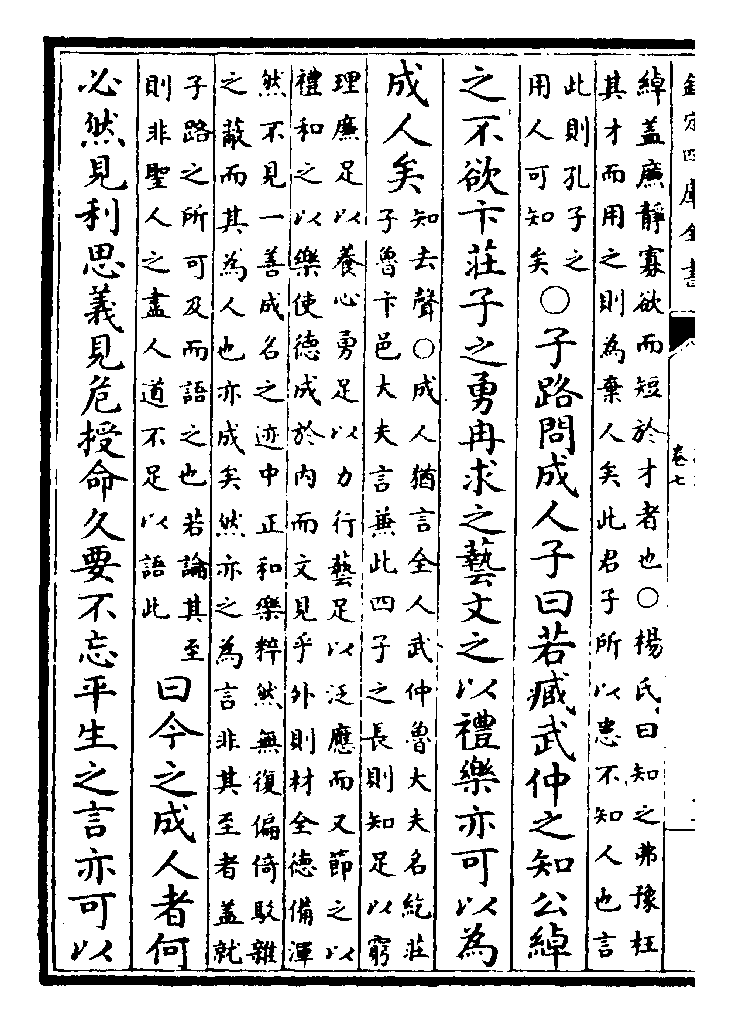 欽定四庫全書
卷七
綽蓋廉靜寡欲而短於才者也○楊氏曰知之弗豫枉
其才而用之則為棄人矣此君子所以患不知人也言
此則孔子之
用人可知矣
○子路問成人子曰若臧武仲之知公綽
之不欲卞莊子之勇冉求之藝文之以禮樂亦可以為
成人矣
知去聲○成人猶言全人武仲魯大夫名紇莊
子魯卞邑大夫言兼此四子之長則知足以窮
理廉足以養心勇足以力行藝足以泛應而又節之以
禮和之以樂使德成於內而文見乎外則材全德備渾
然不見一善成名之迹中正和樂粹然無復偏倚駁雜
之蔽而其為人也亦成矣然亦之為言非其至者蓋就
子路之所可及而語之也若論其至
則非聖人之盡人道不足以語此
曰今之成人者何
必然見利思義見危授命久要不忘平生之言亦可以